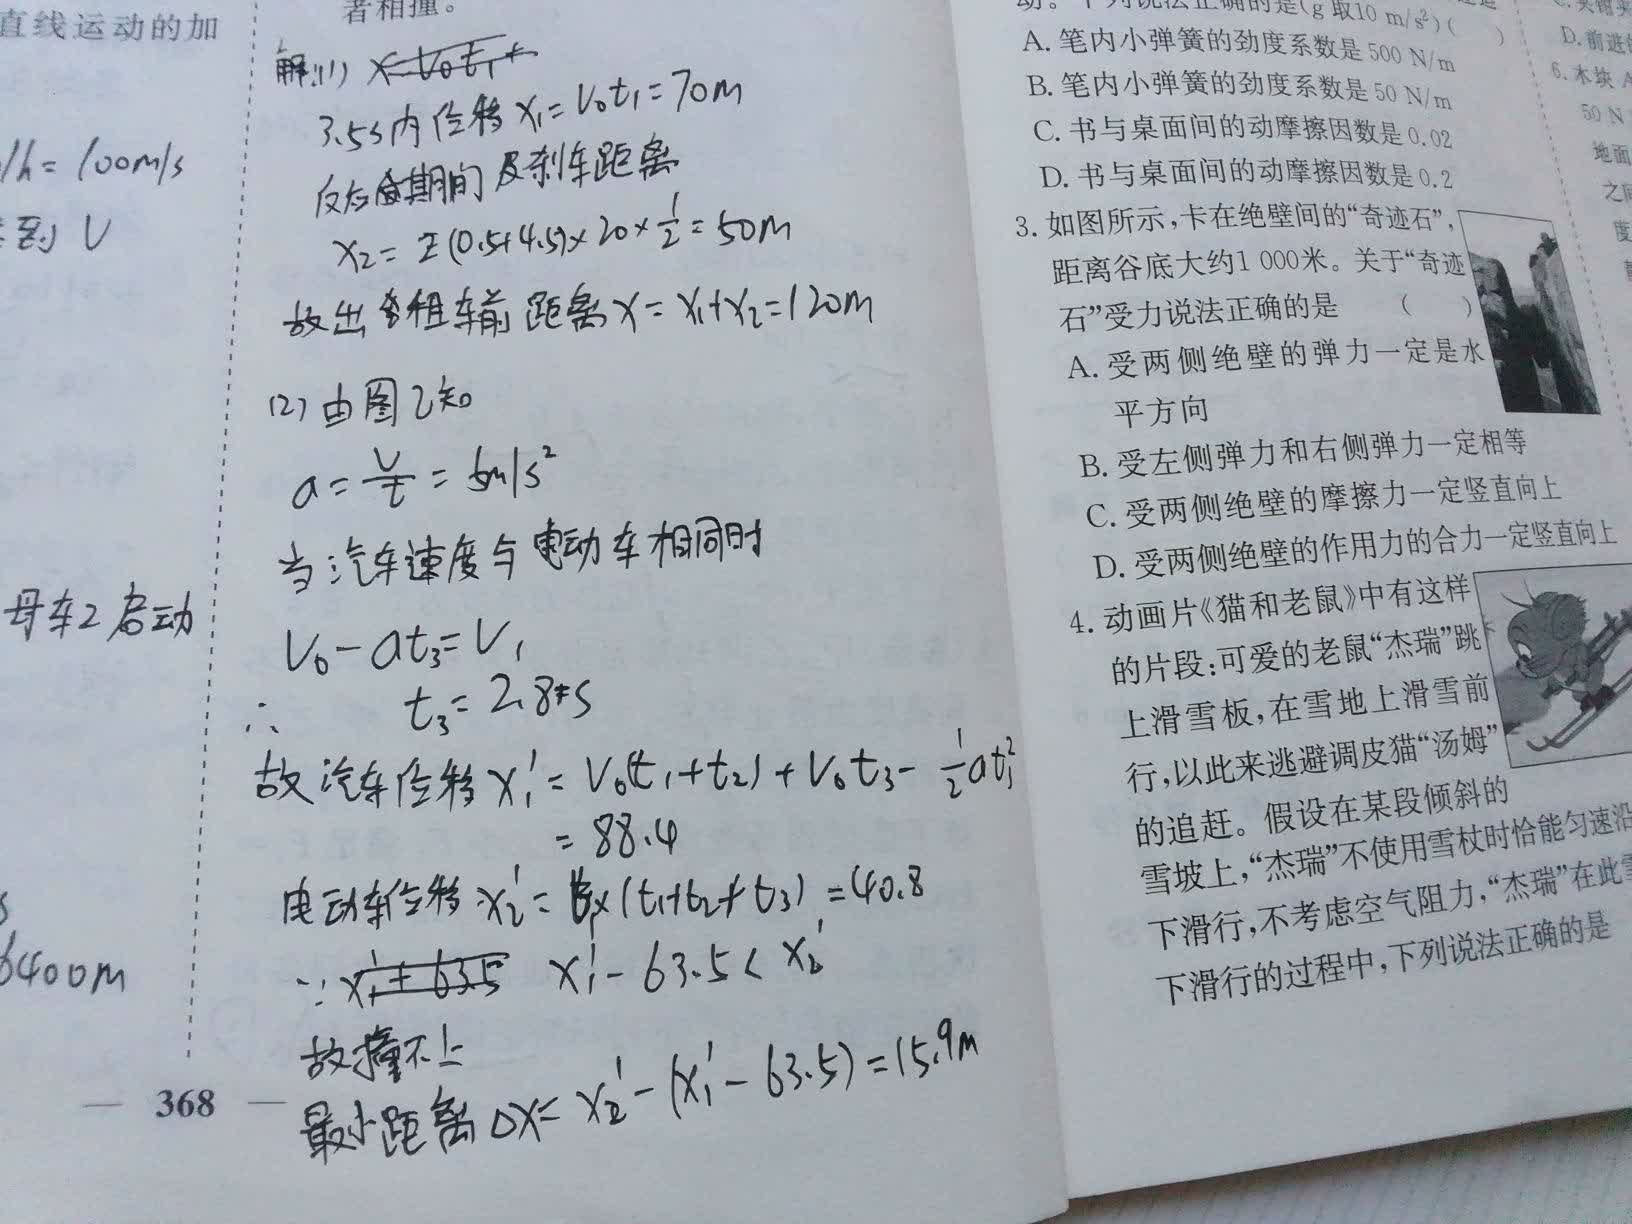 直线运动的加
/h = 100m/s
到 V
母车2启动
6400m
— 368 —
者相撞。
解:(1)
3.5s内位移 x₁=V₀t₁=70m
期间及刹车距离
x₂= (0.5+4.5)×20×1/2=50m
故出租车前距离 x=x₁+x₂=120m
(2) 由图乙知
a=V/t=5m/s²
当汽车速度与电动车相同时
V₀-at₃=V₁
∴ t₃=2.8s
故汽车位移 x₁'=V₀(t₁+t₂)+V₀t₃-1/2at₃²
=88.4
电动车位移 x₂'= (t₁+t₂+t₃)=40.8
∵ x₁'-63.5<x₂'
故撞不上
最小距离 Δx=x₂'-(x₁'-63.5)=15.9m
下列说法正确的是(g取10 m/s²)( )
A. 笔内小弹簧的劲度系数是500 N/m
B. 笔内小弹簧的劲度系数是50 N/m
C. 书与桌面间的动摩擦因数是0.02
D. 书与桌面间的动摩擦因数是0.2
3. 如图所示,卡在绝壁间的“奇迹石”,
距离谷底大约1 000米。关于“奇迹
石”受力说法正确的是 ( )
A. 受两侧绝壁的弹力一定是水
平方向
B. 受左侧弹力和右侧弹力一定相等
C. 受两侧绝壁的摩擦力一定竖直向上
D. 受两侧绝壁的作用力的合力一定竖直向上
4. 动画片《猫和老鼠》中有这样
的片段:可爱的老鼠“杰瑞”跳
上滑雪板,在雪地上滑雪前
行,以此来逃避调皮猫“汤姆”
的追赶。假设在某段倾斜的
雪坡上,“杰瑞”不使用雪杖时恰能匀速沿
下滑行,不考虑空气阻力,“杰瑞”在此
下滑行的过程中,下列说法正确的是
D. 前进
6. 木块A
50 N
地面
之间
度